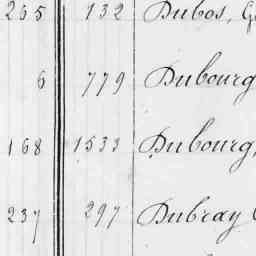 265 132 Dubos, G
6 779 Dubourg
168 1533 Dubourg,
237 297 Dubray